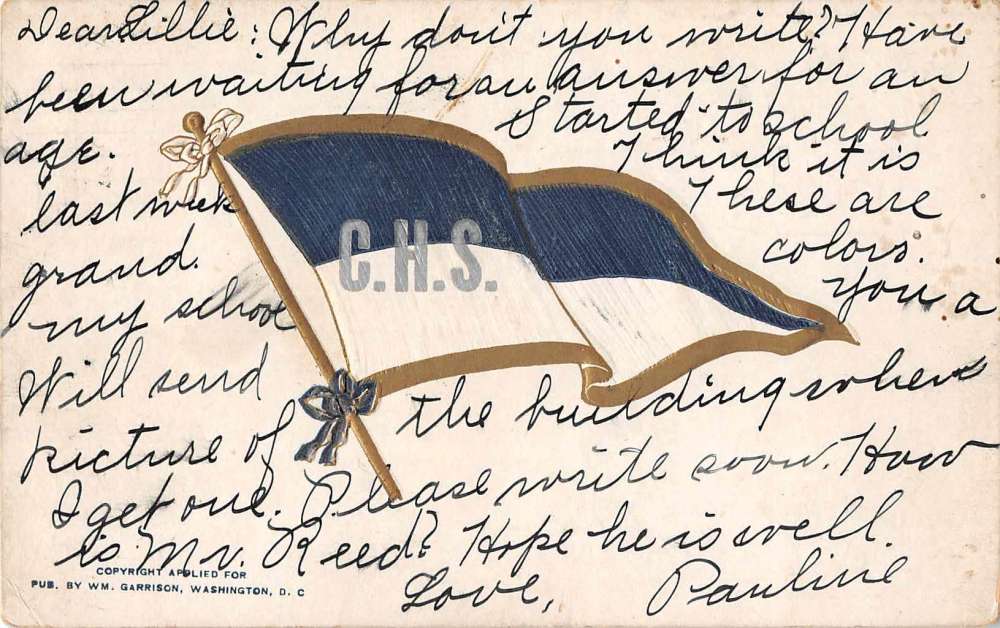 Dear Lillie: Why don't you write? Have
been waiting for an answer for an
age. Started to school
last week Think it is
grand. These are
my school colors.
Will send You a
picture of the building when
I get one. Please write soon. How
is Mr. Reed? Hope he is well.
Love, Pauline
C.H.S.
COPYRIGHT APPLIED FOR
PUB. BY WM. GARRISON, WASHINGTON, D. C